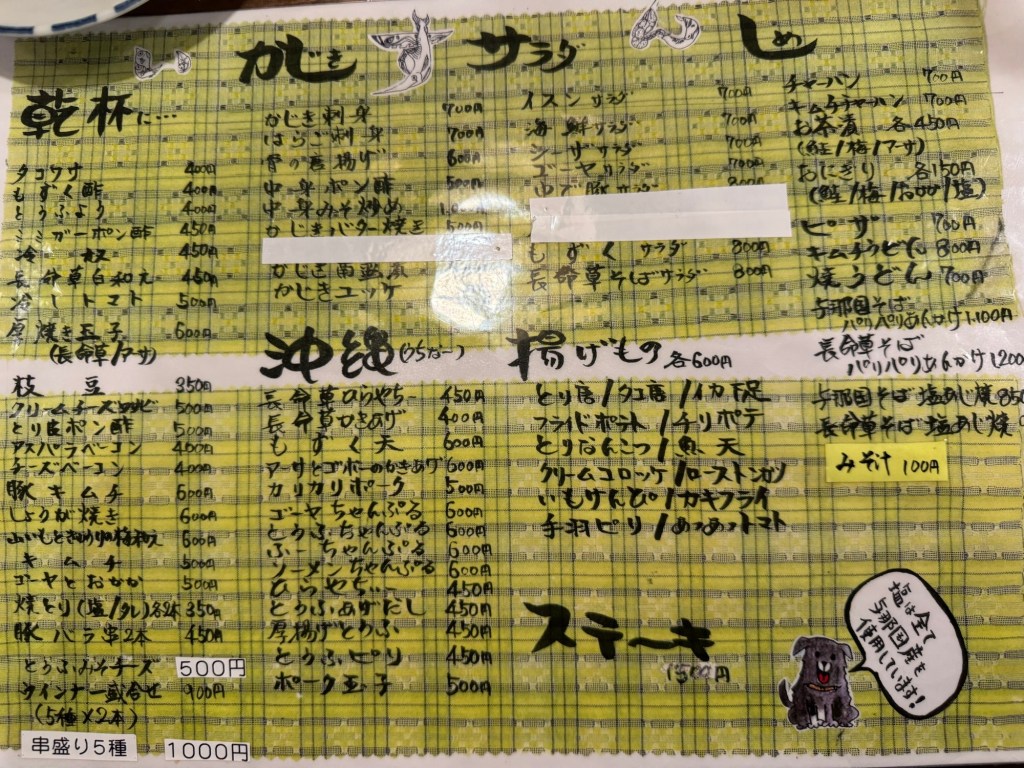 乾杯に…
タコワサ 400円
もずく酢 400円
とうふよう 400円
ミミガーポン酢 450円
冷奴 450円
長命草白和え 450円
冷しトマト 500円
厚焼き玉子 600円
(長命草/アーサ)
枝豆 350円
クリームチーズ 500円
とり皮ポン酢 500円
アスパラベーコン 400円
チーズベーコン 400円
豚キムチ 600円
しょうが焼き 600円
山いもときゅうりの梅和え 600円
キムチ 500円
ゴーヤとおかか 500円
焼とり(塩/タレ)各2本 350円
豚バラ串2本 450円
とうふみそチーズ 500円
ウインナー盛合せ 900円
(5種×2本)
串盛り5種 1000円
かじき
かじき刺身 700円
はらご刺身 700円
骨の唐揚げ 600円
中身ポン酢 500円
中身みそ炒め
かじきバター焼き 500円
かじき南蛮漬
かじきユッケ
沖縄(うちなー)
長命草ひらやちー 450円
長命草かきあげ 400円
もずく天 600円
アーサとゴボーのかきあげ 600円
カリカリポーク 500円
ゴーヤちゃんぷる 600円
とうふちゃんぷる 600円
ふーちゃんぷる 600円
ソーメンちゃんぷる 600円
ひらやちー 450円
とうふあげだし 450円
厚揚げとうふ 450円
とうふピリ 450円
ポーク玉子 500円
サラダ
イスンサラダ 700円
海鮮サラダ 700円
シーザーサラダ 700円
ゴーヤサラダ 700円
ゆで豚サラダ 800円
もずくサラダ 800円
長命草そばサラダ 800円
揚げもの 各600円
とり唐/タコ唐/イカ下足
フライドポテト/チリポテ
とりなんこつ/魚天
クリームコロッケ/ローストンカツ
いもけんぴ/カキフライ
手羽ピリ/あつあつトマト
ステーキ
1500円
しめ
チャーハン 700円
キムチチャーハン 700円
お茶漬 各450円
(鮭/梅/アーサ)
おにぎり 各150円
(鮭/梅/おかか/塩)
ピザ 700円
キムチうどん 800円
焼うどん 700円
与那国そば
パリパリあんかけ 1,100円
長命草そば
パリパリあんかけ 1200
与那国そば 塩あじ焼 850
長命草そば 塩あじ焼
みそ汁 100円
塩は全て
与那国産を
使用しています!